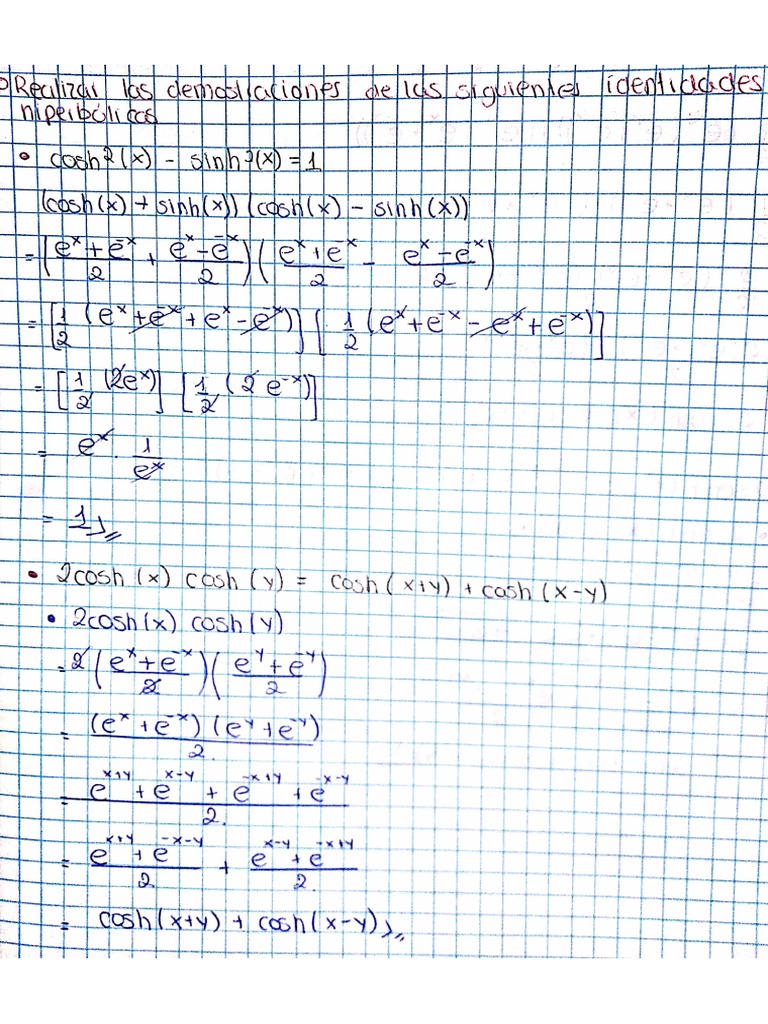 Realizar las demostraciones de las siguientes identidades
hiperbólicas
• cosh²(x) - sinh²(x) = 1
(cosh(x) + sinh(x)) (cosh(x) - sinh(x))
= (e^x + e^-x / 2 + e^x - e^-x / 2) (e^x + e^-x / 2 - e^x - e^-x / 2)
= [1/2 (e^x + e^-x + e^x - e^-x)] [1/2 (e^x + e^-x - e^x + e^-x)]
= [1/2 (2e^x)] [1/2 (2 e^-x)]
= e^x · 1/e^x
= 1
• 2cosh(x) cosh(y) = cosh(x+y) + cosh(x-y)
• 2cosh(x) cosh(y)
= 2 (e^x + e^-x / 2) (e^y + e^-y / 2)
= (e^x + e^-x) (e^y + e^-y) / 2.
= e^x+y + e^x-y + e^-x+y + e^-x-y / 2.
= e^x+y + e^-x-y / 2 + e^x-y + e^-x+y / 2.
= cosh(x+y) + cosh(x-y)